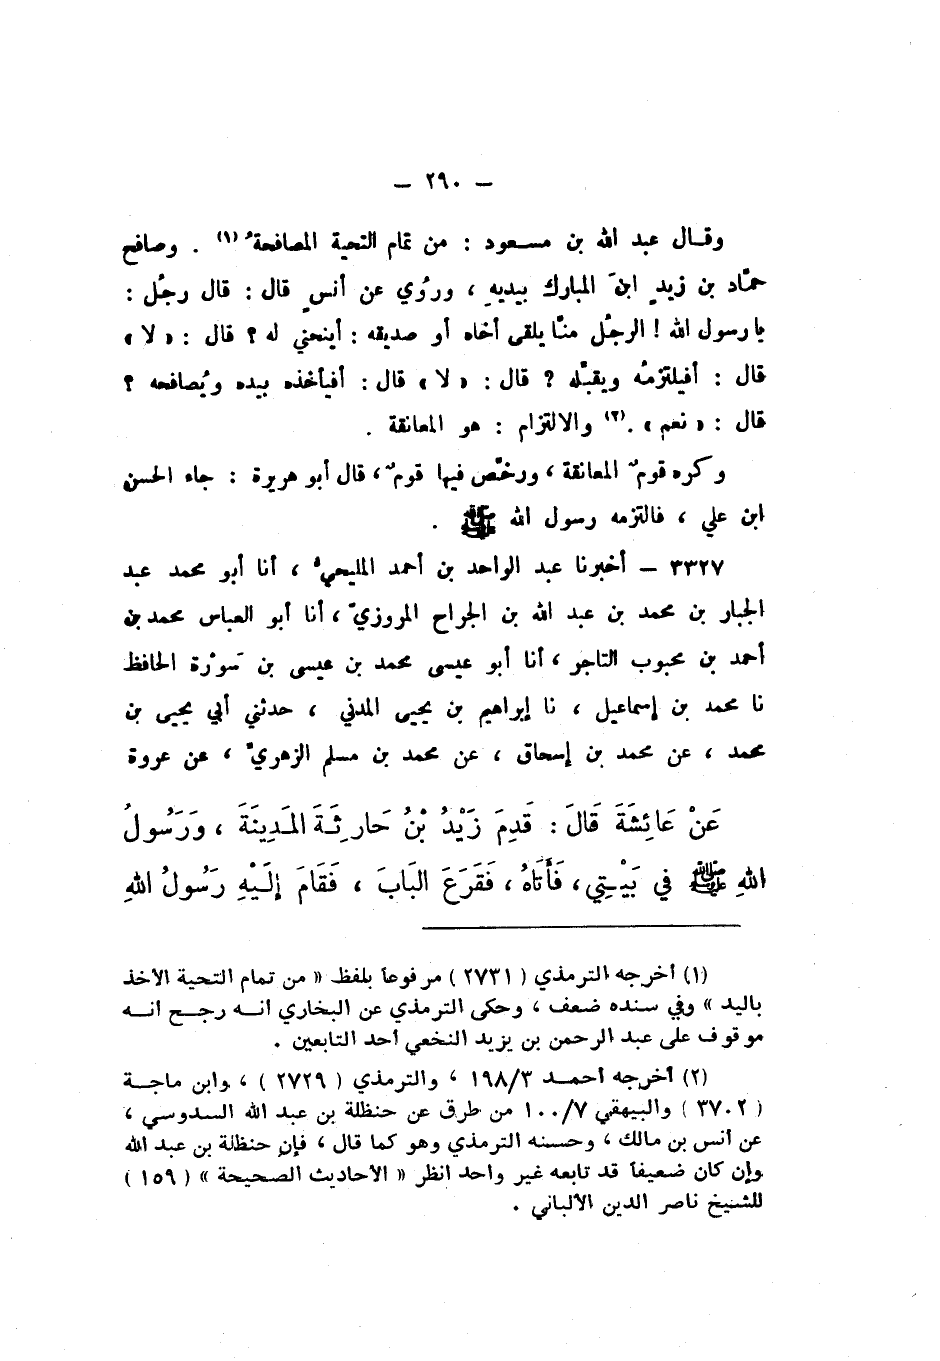 – ٢٩٠ –
وقـال عبد الله بن مسعود : من تمام التحية المصافحةُ (١) . وصافح
حمّاد بن زيدٍ ابنَ المبارك بيديهِ ، ورُوي عن أنسٍ قال : قال رجُل :
يا رسول الله ! الرجُل منّا يلقى أخاه أو صديقه : أينحني له ؟ قال : « لا »
قال : أفيلتزمُه ويقبّله ؟ قال : « لا » قال : أفيأخذه بيده ويُصافحه ؟
قال : « نعم » . (٢) والالتزام : هو المعانقة .
وكره قومٌ المعانقة ، ورخّص فيها قومٌ ، قال أبو هريرة : جاء الحسن
ابن علي ، فالتزمه رسول الله ﷺ .
٣٣٢٧ – أخبرنا عبد الواحد بن أحمد المليحيُّ ، أنا أبو محمد عبد
الجبار بن محمد بن عبد الله بن الجراح المروزيّ ، أنا أبو العباس محمد بن
أحمد بن محبوب التاجر ، أنا أبو عيسى محمد بن عيسى بن سَوْرة الحافظ
نا محمد بن إسماعيل ، نا إبراهيم بن يحيى المدني ، حدثني أبي يحيى بن
محمد ، عن محمد بن إسحاق ، عن محمد بن مسلم الزهريّ ، عن عروة
عَنْ عَائِشَةَ قَالَ : قَدِمَ زَيْدُ بْنُ حَارِثَةَ المَدِينَةَ ، وَرَسُولُ
اللهِ ﷺ في بَيْتِي ، فَأَتَاهُ ، فَقَرَعَ البَابَ ، فَقَامَ إلَيْهِ رَسُولُ اللهِ
(١) أخرجه الترمذي ( ٢٧٣١ ) مرفوعاً بلفظ « من تمام التحية الأخذ
باليد » وفي سنده ضعف ، وحكى الترمذي عن البخاري أنـه رجـح أنـه
موقوف على عبد الرحمن بن يزيد النخعي أحد التابعين .
(٢) أخرجه أحمـد ١٩٨/٣ ، والترمذي ( ٢٧٢٩ ) ، وابن ماجـة
( ٣٧٠٢ ) والبيهقي ١٠٠/٧ من طرق عن حنظلة بن عبد الله السدوسي ،
عن أنس بن مالك ، وحسنه الترمذي وهو كما قال ، فإن حنظلة بن عبد الله
وإن كان ضعيفاً قد تابعه غير واحد انظر « الأحاديث الصحيحة » ( ١٥٩ )
للشيخ ناصر الدين الألباني .